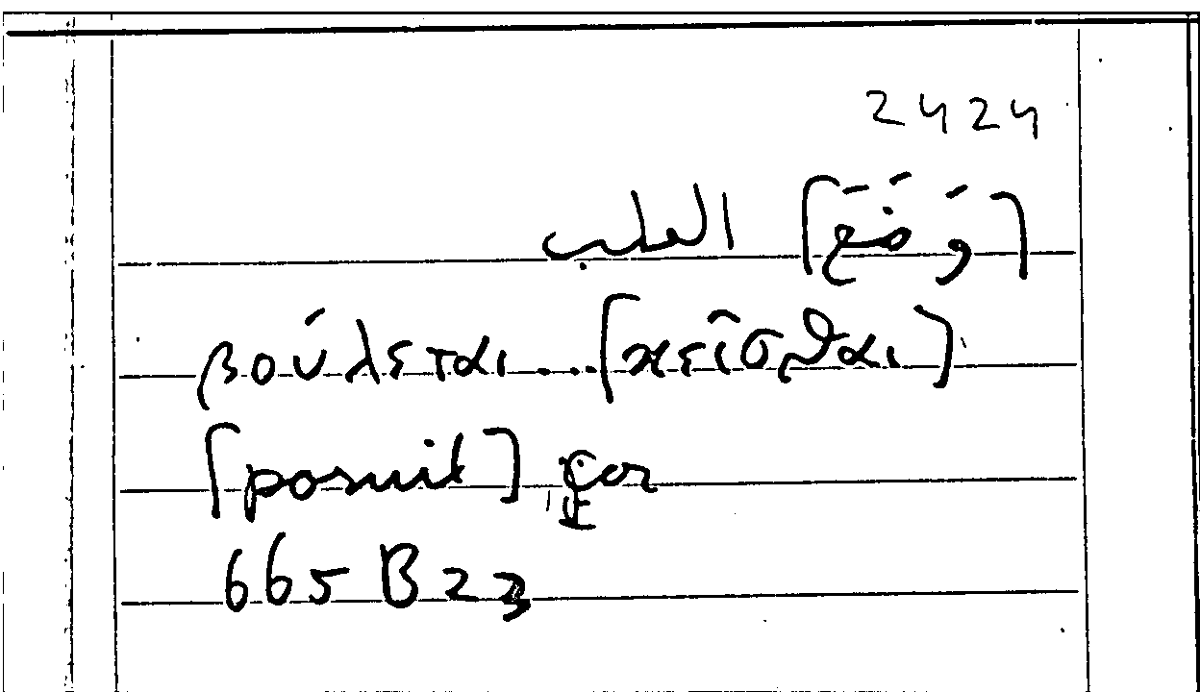 2424
[وَضَعَ] القلب
βούλεται...[κεῖσθαι]
[posuit] cor
665 B 23